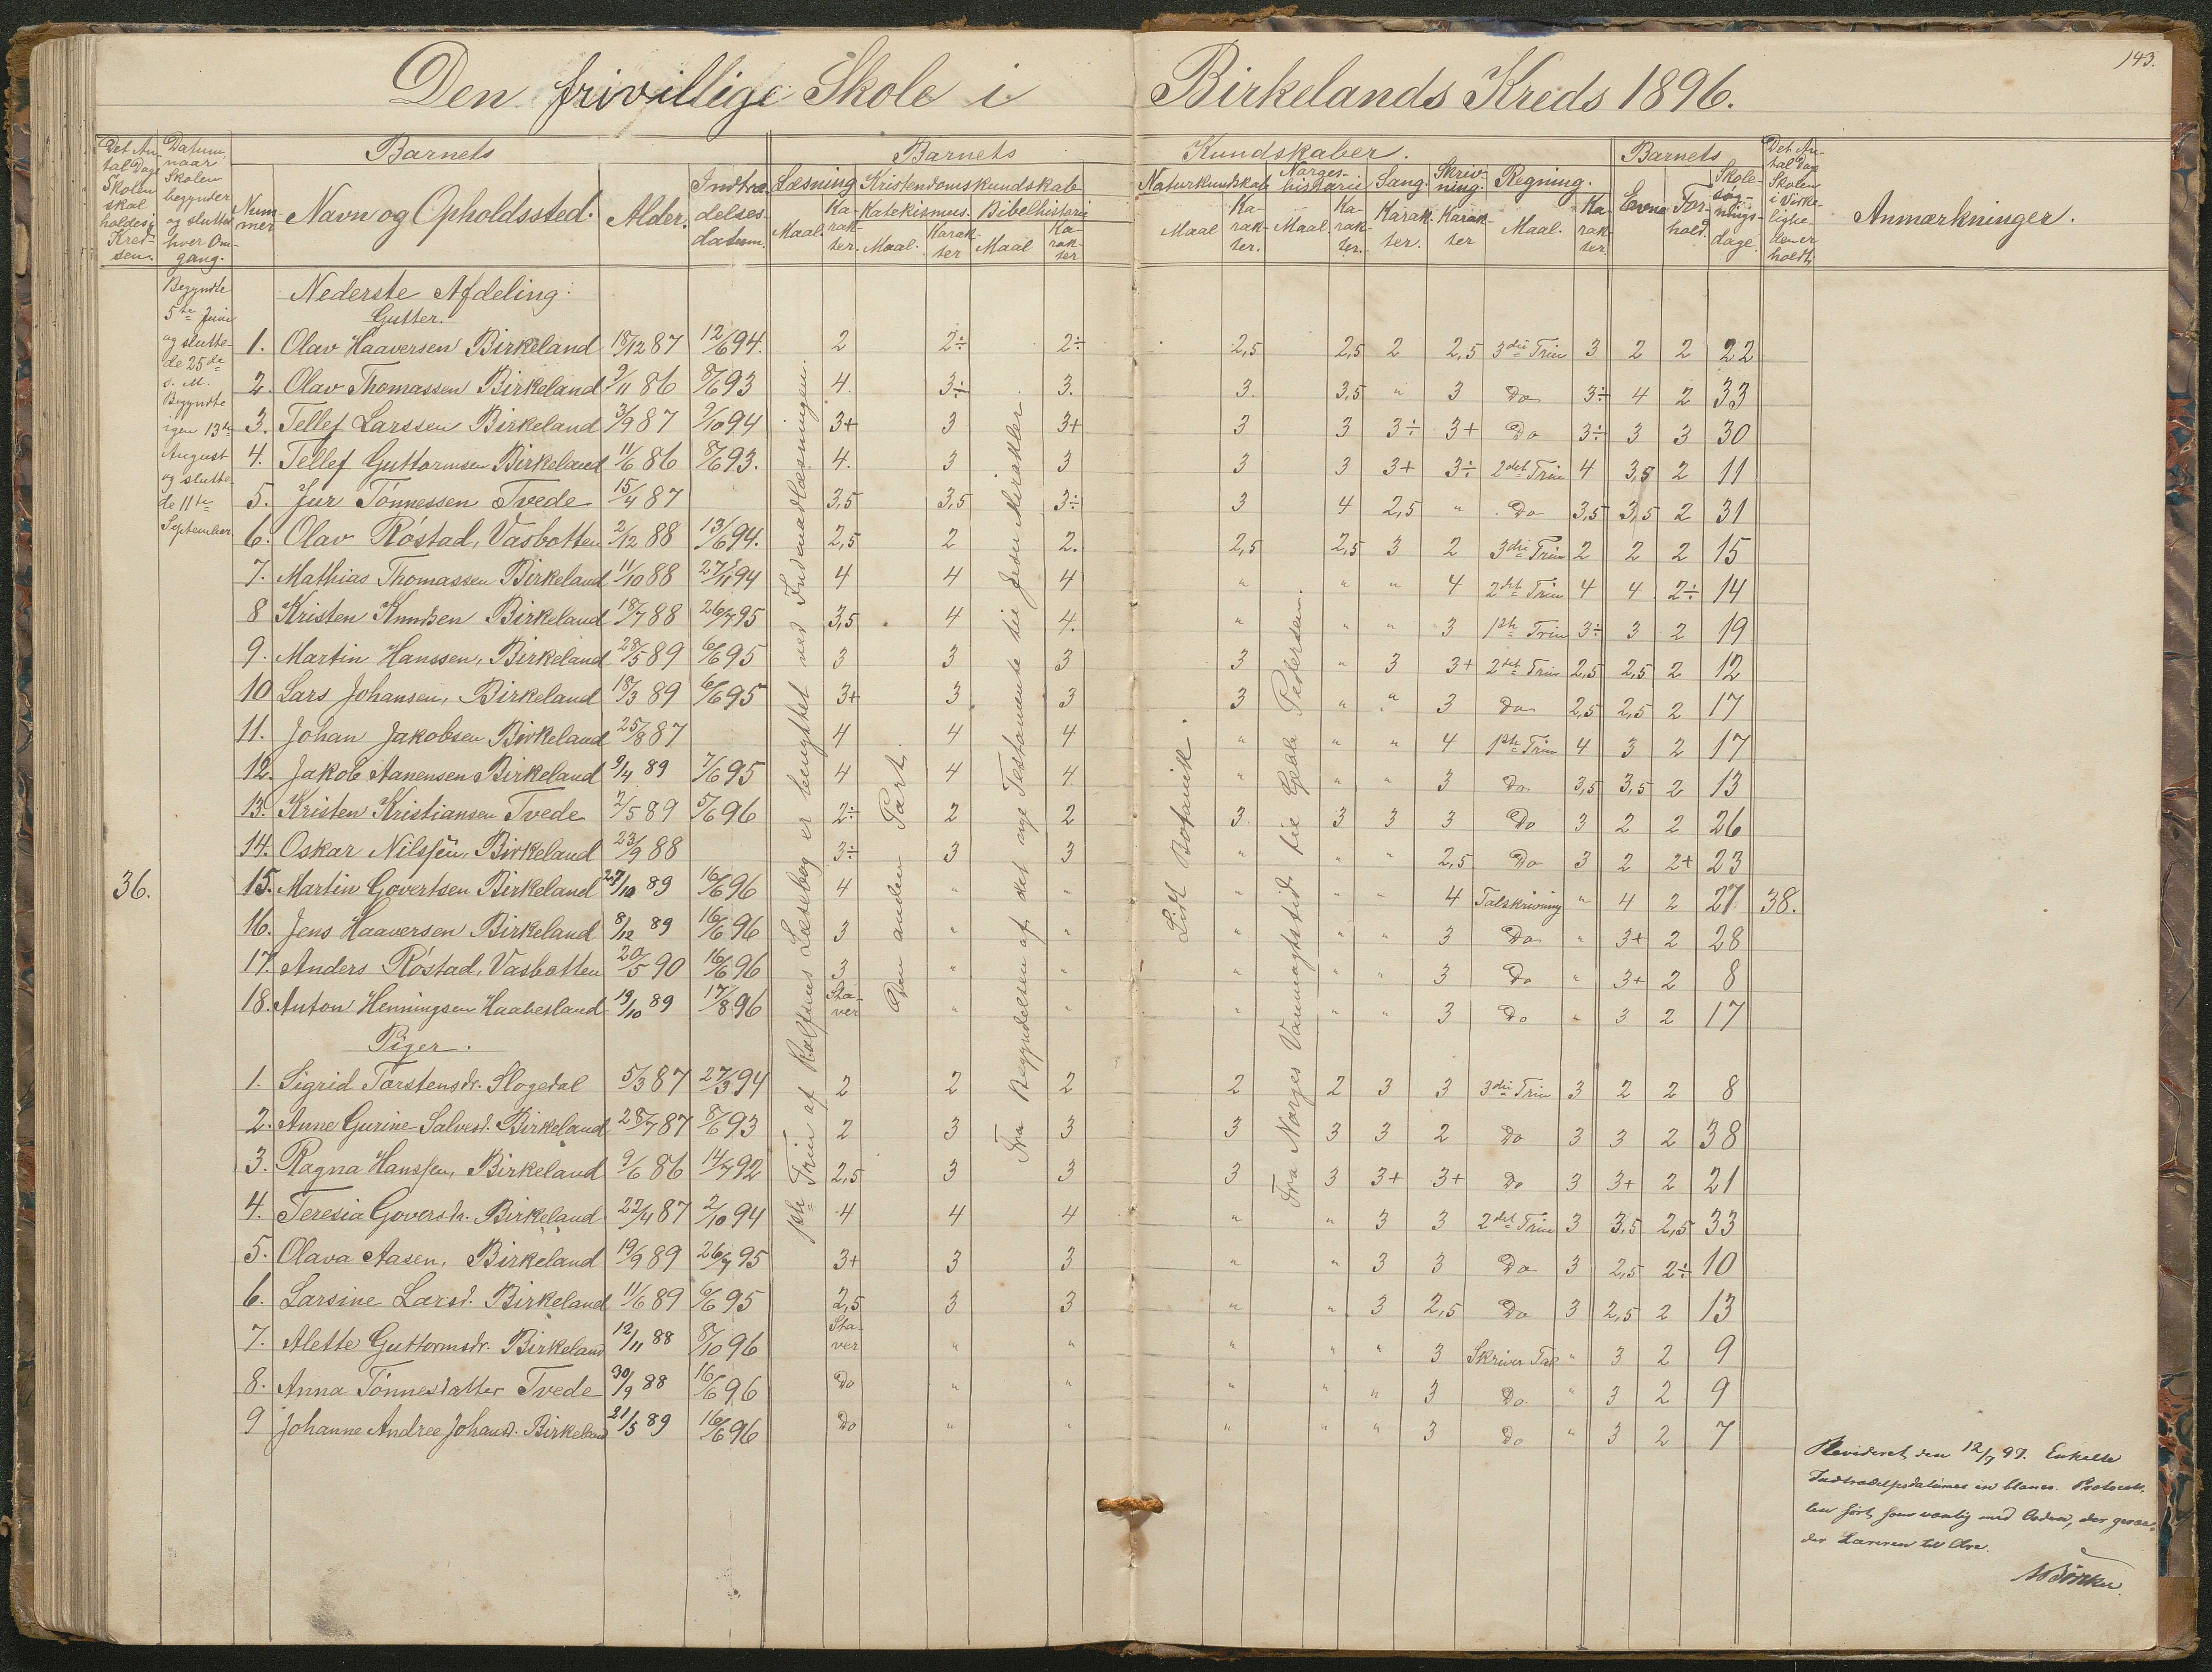 143.
Den frivillige Skole i Birkelands Kreds 1896.
Det An-
tal Dage
Skolen
skal
holdes i
Kred-
sen.
Datum,
naar
Skolen
begynder
og slutter
hver Om-
gang.
Barnets
Num-
mer
Navn og Opholdssted.
Alder.
Indtræ-
delses-
datum.
Barnets Kundskaber.
Læsning
Maal.
Ka-
rak-
ter.
Kristendomskundskab
Katekismus.
Maal.
Karak-
ter
Bibelhistorie
Maal
Ka-
rak-
ter
Naturkundskab
Maal
Ka-
rak-
ter.
Norges-
historie
Maal
Ka-
rak-
ter.
Sang.
Karak-
ter.
Skriv-
ning.
Karak-
ter
Regning.
Maal.
Ka-
rak-
ter.
Barnets
Evne
For-
hold.
Skole-
søg-
nings-
dage.
Det An-
tal Dage
Skolen
i Virke-
lighe-
den er
holdt.
Anmærkninger.
Begyndte
5te Juni
og slutte-
de 25de
s. M.
Begyndte
igen 13de
August
og slutte-
de 11te
September
36.
38.
1ste Trin af Rolfsens Læsebog er benyttet ved Indenadlæsningen.
Den anden Part.
Fra Begyndelsen af det nye Testamente til Jesu Mirakler.
Lidt Botanik.
Fra Norges Vanmagtstid til Geble Pedersen.
Nederste Afdeling.
Gutter.
1. Olav Haaversen Birkeland 18/12 87 12/6 94. 2 2÷ 2÷ 2,5 2,5 2 2,5 3die Trin 3 2 2 22
2. Olav Thomassen Birkeland 9/11 86 8/6 93 4 3÷ 3. 3. 3,5 " 3 Do 3÷ 4 2 33
3. Tellef Larssen Birkeland 3/9 87 2/10 94 3+ 3 3+ 3 3 3÷ 3+ Do 3÷ 3 3 30
4. Tellef Guttormsen Birkeland 11/6 86 8/6 93. 4. 3 3 3 3 3+ 3÷ 2det Trin 4 3,5 2 11
5. Jur Tönnessen Tvede 15/4 87 3,5 3,5 3÷ 3 4 2,5 " Do 3,5 3,5 2 31
6. Olav Röstad, Vasbotten 2/12 88 13/6 94. 2,5 2 2. 2,5 2,5 3 2 3die Trin 2 2 2 15
7. Mathias Thomassen Birkeland 11/10 88 27/11 94 4 4 4 " " " 4 2det Trin 4 4 2÷ 14
8 Kristen Knudsen Birkeland 18/7 88 26/7 95 3,5 4 4. " " " 3 1ste Trin 3÷ 3 2 19
9. Martin Hanssen, Birkeland 28/5 89 6/6 95 3 3 3 3 " 3 3+ 2det Trin 2,5 2,5 2 12
10 Lars Johansen, Birkeland 18/3 89 6/6 95 3+ 3 3 3 " " 3 Do 2,5 2,5 2 17
11. Johan Jakobsen Birkeland 25/8 87 4 4 4 " " " 4 1ste Trin 4 3 2 17
12. Jakob Aanensen Birkeland 9/4 89 7/6 95 4 4 4 " " " 3 Do 3,5 3,5 2 13
13. Kristen Kristiansen Tvede 2/5 89 5/6 96 2÷ 2 2 3 3 3 3 Do 3 2 2 26
14. Oskar Nilssen, Birkeland 23/9 88 3÷ 3 3 " " " 2,5 Do 3 2 2+ 23
15. Martin Govertsen Birkeland 27/10 89 16/6 96 4 " " " " " 4 Talskrivning " 4 2 27
16. Jens Haaversen Birkeland 8/12 89 16/6 96 3 " " " " " 3 Do " 3+ 2 28
17. Anders Röstad, Vasbotten 20/5 90 16/6 96 3 " " " " " 3 Do " 3+ 2 8
18. Anton Henningsen Haabesland 19/10 89 17/8 96 Sta-
ver " " " " " 3 Do " 3 2 17
Piger.
1. Sigrid Torstensdr. Slogedal 5/3 87 27/3 94 2 2 2 2 2 3 3 3die Trin 3 2 2 8
2. Anne Gurine Salvesd. Birkeland 28/7 87 8/6 93 2 3 3 3 3 3 2 Do 3 3 2 38
3. Ragna Hanssen, Birkeland 9/6 86 14/7 92 2,5 3 3 3 3 3+ 3+ Do 3 3+ 2 21
4. Teresia Goversdr. Birkeland 22/4 87 2/10 94 4 4 4 " " 3 3 2det Trin 3 3,5 2,5 33
5. Olava Aasen, Birkeland 19/9 89 26/7 95 3+ 3 3 " " 3 3 Do 3 2,5 2÷ 10
6. Larsine Larsd. Birkeland 11/6 89 6/6 95 2,5 3 3 " " 3 2,5 Do 3 2,5 2 13
7. Alette Guttormsdr. Birkeland 12/11 88 8/10 96 Sta-
ver " " " " " 3 Skriver Tal " 3 2 9
8. Anna Tönnesdatter Tvede 30/9 88 16/6 96 Do " " " " " 3 Do. " 3 2 9
9 Johanne Andree Johansd. Birkeland 21/5 89 16/6 96 Do " " " " " 3 Do " 3 2 7
Revideret den 12/7 97. Enkelte
Indtrædelsesdatumer in blanco. Protocol-
len ført som vanlig med Orden, der geraa-
der Læreren til Ære.